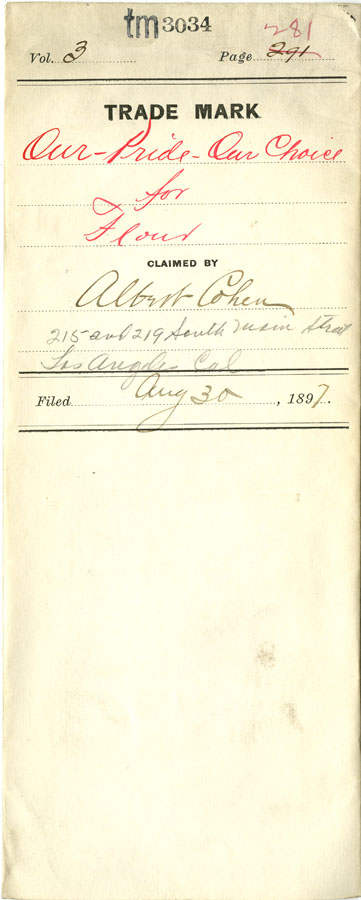 tm3034
281
Vol. 3 Page 291
TRADE MARK.
Our-Pride-Our Choice
for
Flour
CLAIMED BY
Albert Cohen
215 and 219 South Main Street
Los Angeles Cal
Filed Aug 30, 1897.